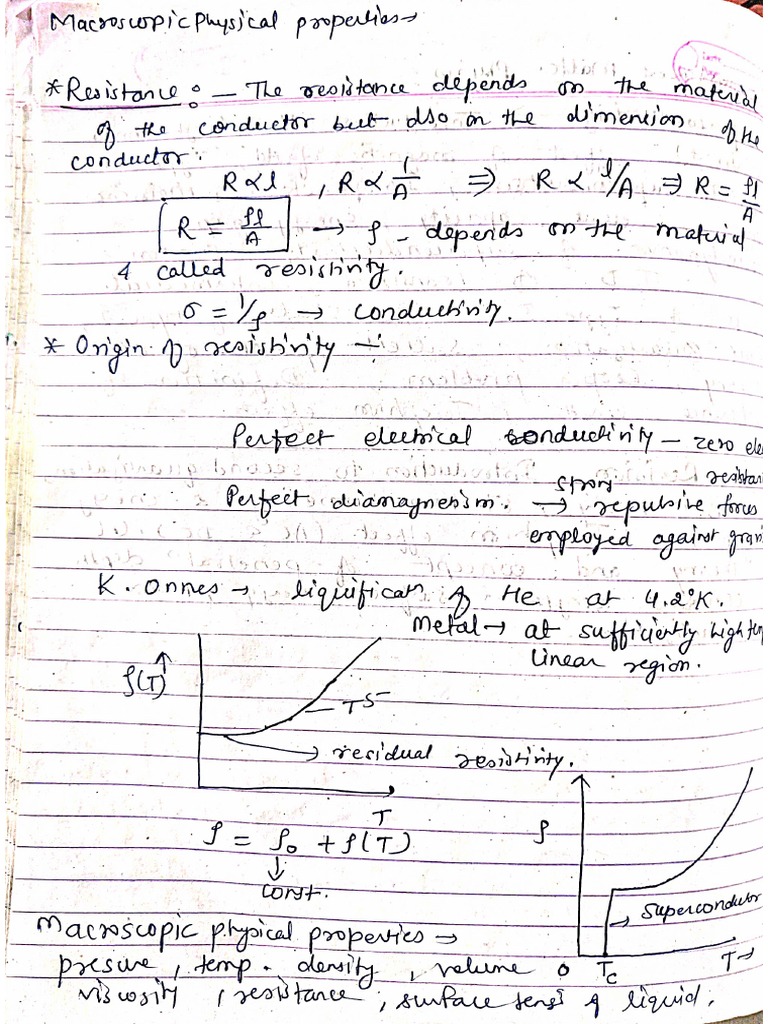 Macroscopic Physical properties →
* Resistance :- The resistance depends on the material
of the conductor but also on the dimension of the
conductor.
R ∝ l , R ∝ 1/A ⇒ R ∝ l/A ⇒ R = ρl/A
R = ρl/A → ρ - depends on the material
& called resistivity.
σ = 1/ρ → conductivity.
* Origin of resistivity →
Perfect electrical conductivity - zero ele
resistan
Perfect diamagnetism. → strong repulsive forces
employed against gravi
K. Onnes → liquificatn of He at 4.2°K.
Metal → at sufficiently high tem
linear region.
ρ(T) ↑
T⁵
→ residual resistivity.
T
ρ = ρ₀ + ρ(T)
↓
const.
ρ
→ superconductor
0 Tc T→
Macroscopic physical properties →
presure, temp. density, volume
viscosity, resistance, surface tensn of liquid.